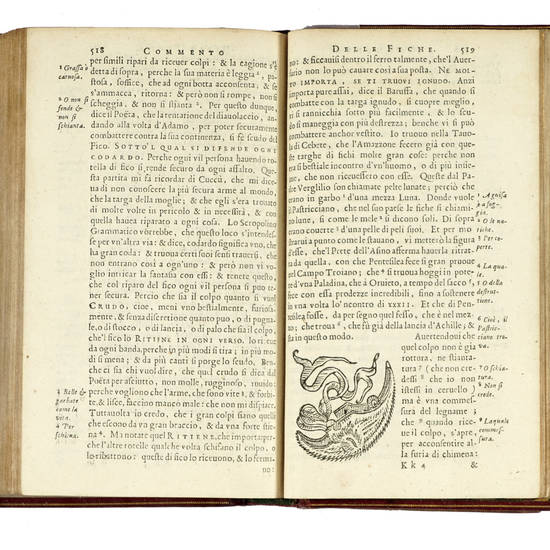 518 COMMENTO
per simili ripari da riceuer colpi: & la cagione s'è
detta di sopra, perche la sua materia è leggia, pa-
stosa, soffice, che ad ogni botta acconsente: & se
s'ammacca, ritorna: & però non si rompe, non si
scheggia, & non si schianta. Per questo dunque,
dice il Poëta, che la tentatione del diauolaccio, an-
dando alla volta d'Adamo, per poter securamente
combattere contra la sua continenza, si fè scudo del
Fico. SOTTO'L QVAL SI DIFENDE OGNI
CODARDO. Perche ogni vil persona hauendo ro-
tella di fico sì, rende securo da ogni assalto. Que-
sta partita mi fà ricordar di Cuccù, che mi dice-
ua di non conoscere la più secura arme al mondo,
che la targa della moglie; & che egli s'era trouato
di molte volte in pericolo & in necessità, & con
quella hauea riparato a ogni cosa. Lo Scropolino
Grammatico vorrebbe, che questo loco s'intendes-
se per vn'altra via: & dice, codardo significa vno, che
ha gran coda: & troua certi suoi sensi trauersi, che
non entrano così a ogn'uno: & però non vi vo-
glio intricar la fantasia con essi: & tenete questo,
che col riparo del fico ogni vil persona si può te-
ner secura. Percio che sia il colpo quanto si vuol
CRVDO, cioè, meni vno bestialmente, furiosa-
mente, & senza discretione quanto puo, o di pugna-
le, o di stocco, o di lancia, o di palo che sia il colpo,
che'l fico lo RITIENE IN OGNI VERSO. lo ri tuz
da ogni banda, perche in più modi si tira; in più mo-
di si mena; & da più canti si porge lo scudo. Ben-
che ci sia chi vuol dire, che quel crudo si dica dal
Poëta per asciutto, non molle, rugginoso, ruuido:
perche vogliono che l'Arme, che sono vite, & forbi-
te, & lisce, faccino manco male: che non mi dispiace.
Tuttauolta io credo, che i gran colpi siano quelli
che escono da vn gran braccio, & da vna forte sti-
na. Ma notate quel RITIENE, che importa per-
che l'altre rotelle qualche volta schifano il colpo, o
lo ributtono: queste di fico lo riceuono, & lo ferma-
no:
1 Grassa o
carnosa.
2 O non si
fende &
non si
schianta.
3 Belle &
garbate
come la
vita.
4 Per
schiena.
DELLE FICHE. 519
no: & ficcauisi dentro il ferro talmente, che'l Auer-
sario non lo può cauare così a sua posta. NE MOL-
TO IMPORTA, SE TI TRVOVI IGNVDO. Anzi
importa pure assai, dice il Barussa, che quando si
combatte con la targa ignudo, si cuopre meglio,
vi si rannicchia sotto più facilmente, & lo scu-
do si maneggia con più destrezza; benche vi si può
combattere anchor vestito. Io truouo nella Tauo-
la di Cebete, che l'Amazzone fecero già con que-
ste targhe di fichi molte gran cose: perche non
era sì bestiale incontro d'vn'huomo, o di più insie-
me, che non riceuessero con esse. Queste dal Pa-
dre Vergilio son chiamate pelte lunate; perciò che
erano in garbo d'vna mezza Luna. Donde vuole
il Pastricciano, che nel suo paese le fiche si chiami-
no lunate, sì come le mele si dicono soli. Di sopra
erano couerte d'vna pelle di peli suoi. Et per mo
strarui a punto come le stauano, vi metterò la figura
d'esse, che'l Prete dell'Asino afferma hauerla ritrat-
ta da quella, con che Pentesilea fece da gran guerra
nel Campo Troiano; che si truoua hoggi in pote-
re d'vna Paladina, che à Oruieto, a tempo del sacco,
fece con essa prodezze incredibili, fino a sostenere
in vna volta lo'ncontro di XXXII. Et che di Pen-
tesilea fosse, da per segno quel fesso, che è nel mez-
zo; che troua, che fù già della lancia d'Achille; &
sta in questo modo.
Auertendoui che
quel colpo non è gia
rottura, ne stianta-
tura (che non cre-
dessi che io non
istessi in ceruello)
ma è vna commes-
sura del legname;
che quando rice-
ue il colpo, s'apre,
per acconsentire al-
la furia di chi mena:
Kk 4 &